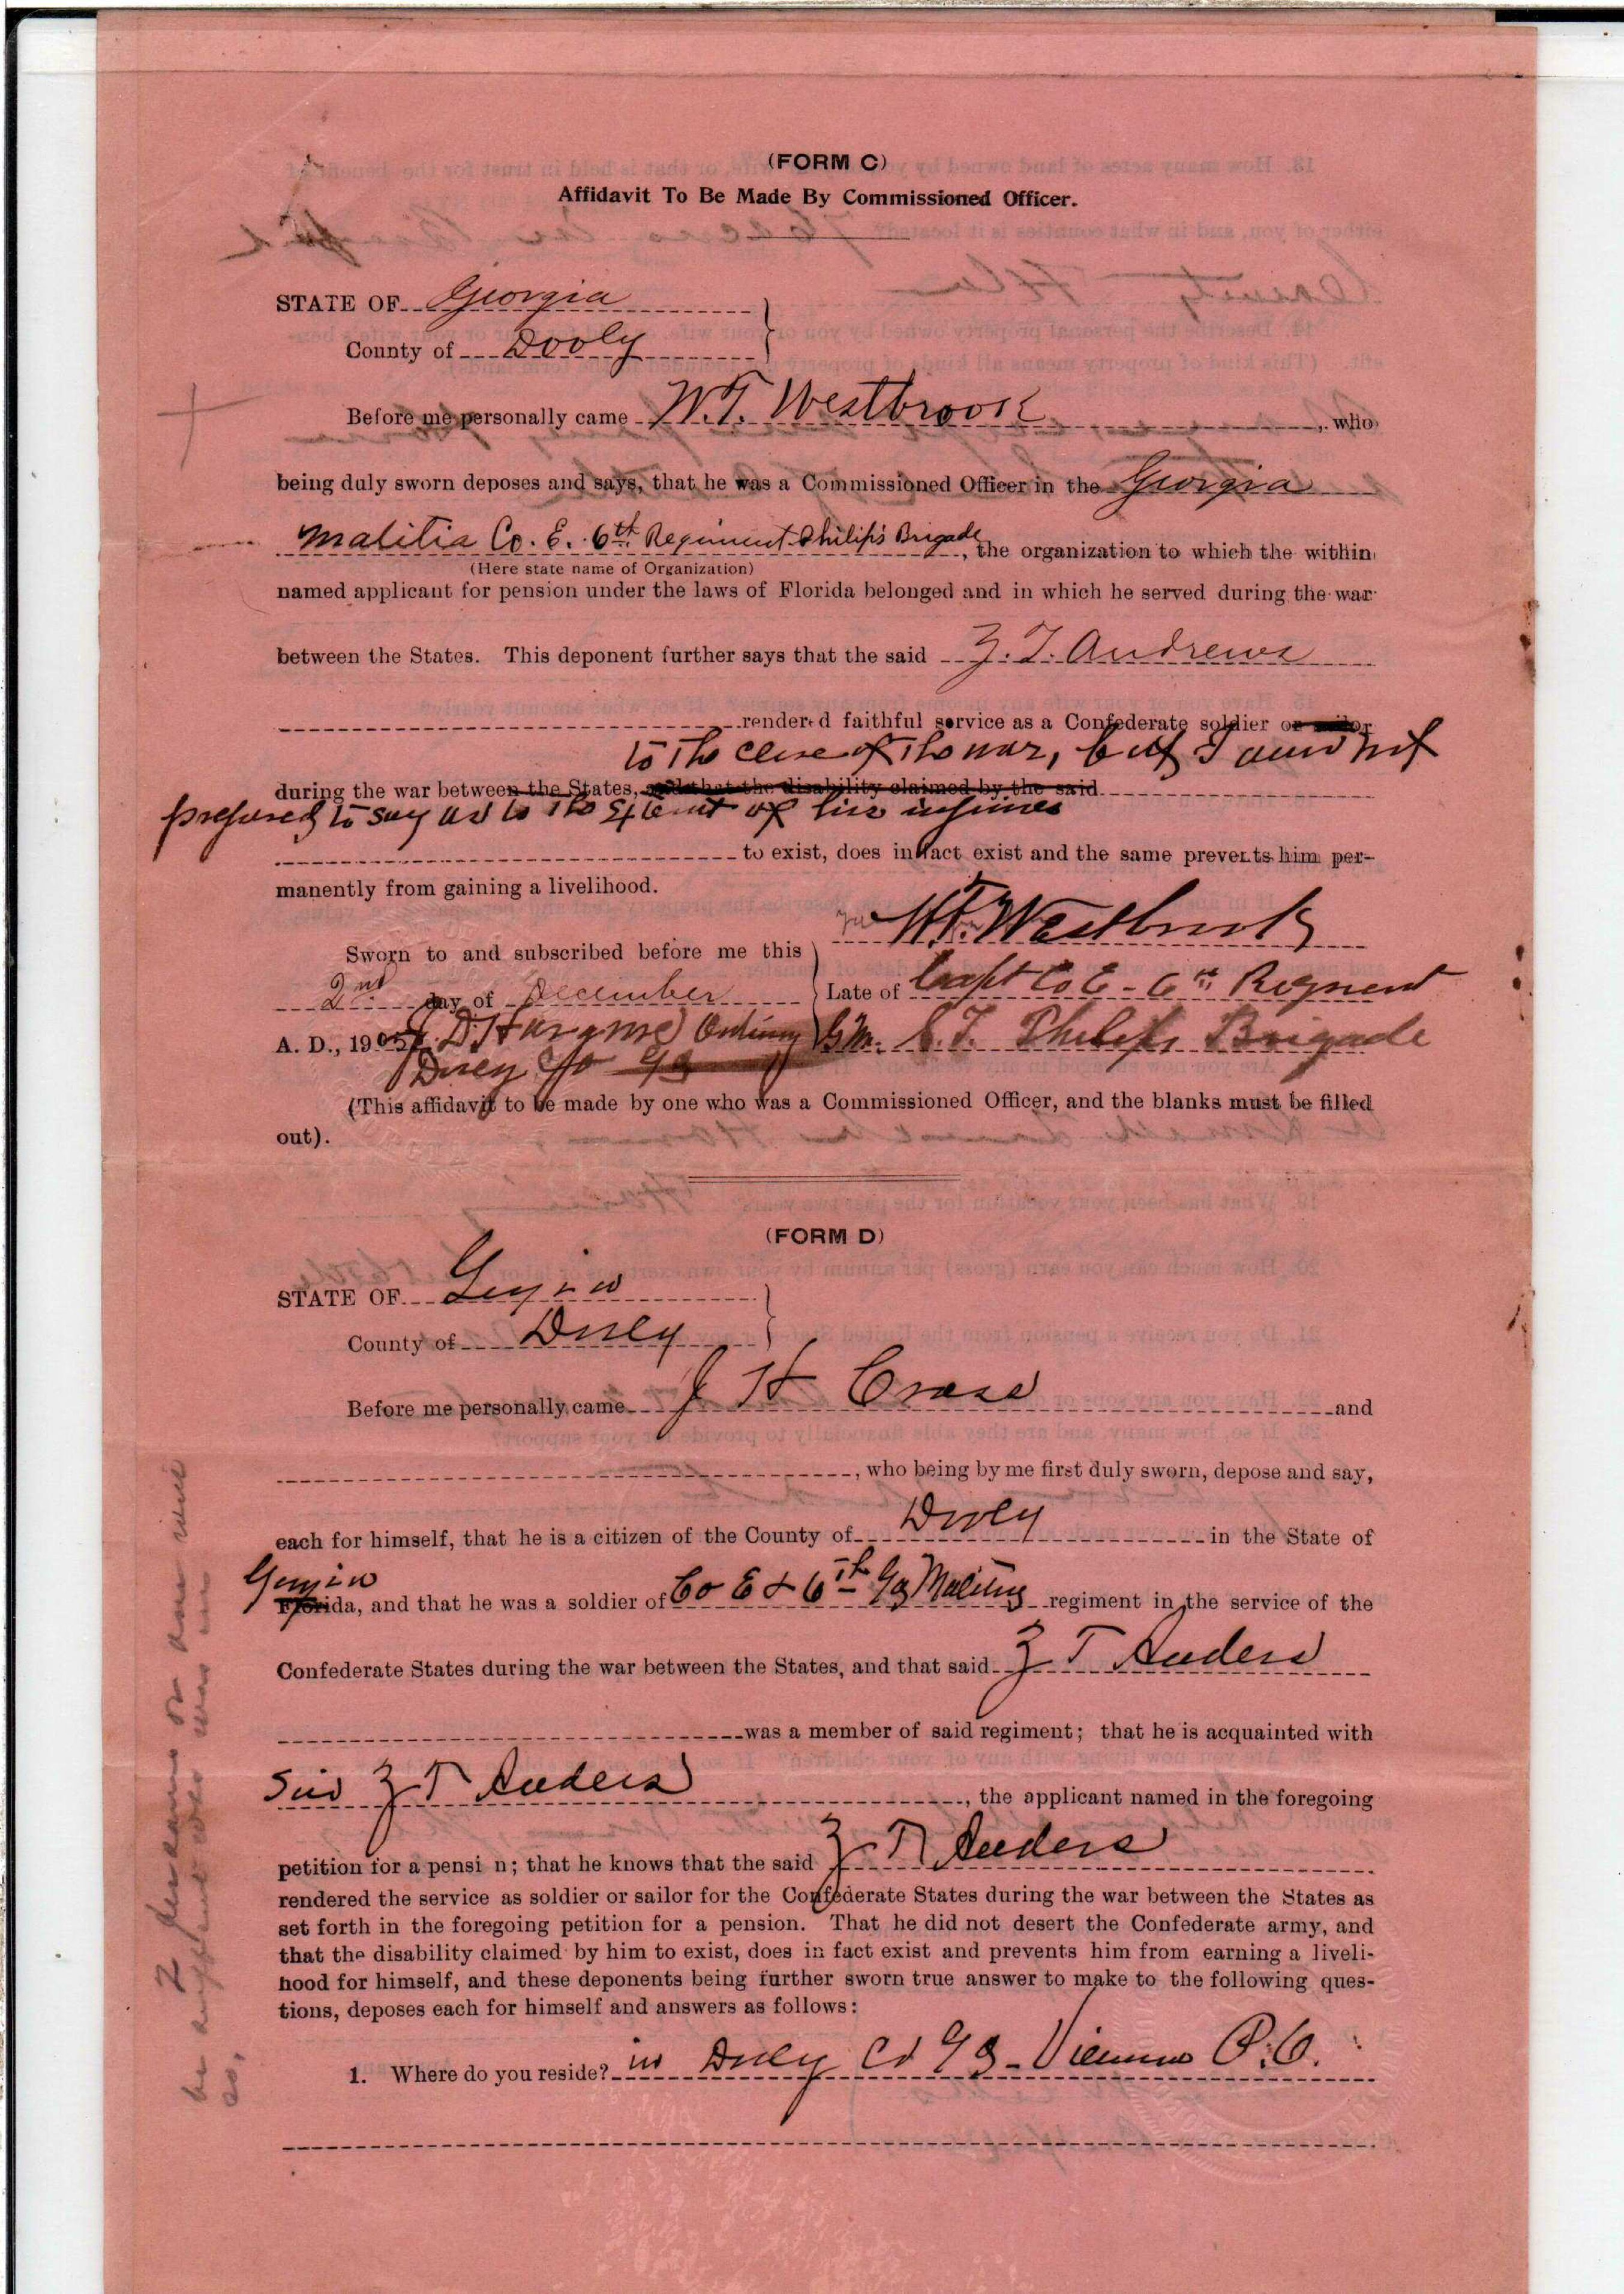 (FORM C)
Affidavit To Be Made By Commissioned Officer.
STATE OF Georgia
County of Dooly
Before me personally came W.T. Westbrook, who
being duly sworn deposes and says, that he was a Commissioned Officer in the Georgia
Malitia Co. E. 6th Regiment Philip's Brigade, the organization to which the within
(Here state name of Organization)
named applicant for pension under the laws of Florida belonged and in which he served during the war
between the States. This deponent further says that the said Z. T. Andrews
rendered faithful service as a Confederate soldier or sailor
to the close of the war, but I am not
during the war between the States, and that the disability claimed by the said
prepared to say as to the extent of his
to exist, does in fact exist and the same prevents him per-
manently from gaining a livelihood.
W.T. Westbrook
Sworn to and subscribed before me this
2nd day of December
Late of Capt Co E - 6th Regment
A. D., 1905 Ordinary
G.M. Philips Brigade
Dooly Co Ga
(This affidavit to be made by one who was a Commissioned Officer, and the blanks must be filled
out).
(FORM D)
STATE OF Georgia
County of Dooly
Before me personally came J H Crase and
, who being by me first duly sworn, depose and say,
each for himself, that he is a citizen of the County of Dooly in the State of
Georgia
Florida, and that he was a soldier of Co E & 6th Ga Malitia regiment in the service of the
Confederate States during the war between the States, and that said Z T Anders
was a member of said regiment; that he is acquainted with
Said Z T Anders, the applicant named in the foregoing
petition for a pensi n; that he knows that the said Z T Anders
rendered the service as soldier or sailor for the Confederate States during the war between the States as
set forth in the foregoing petition for a pension. That he did not desert the Confederate army, and
that the disability claimed by him to exist, does in fact exist and prevents him from earning a liveli-
hood for himself, and these deponents being further sworn true answer to make to the following ques-
tions, deposes each for himself and answers as follows:
1. Where do you reside? in Dooly Co Ga - Vienna P.O.